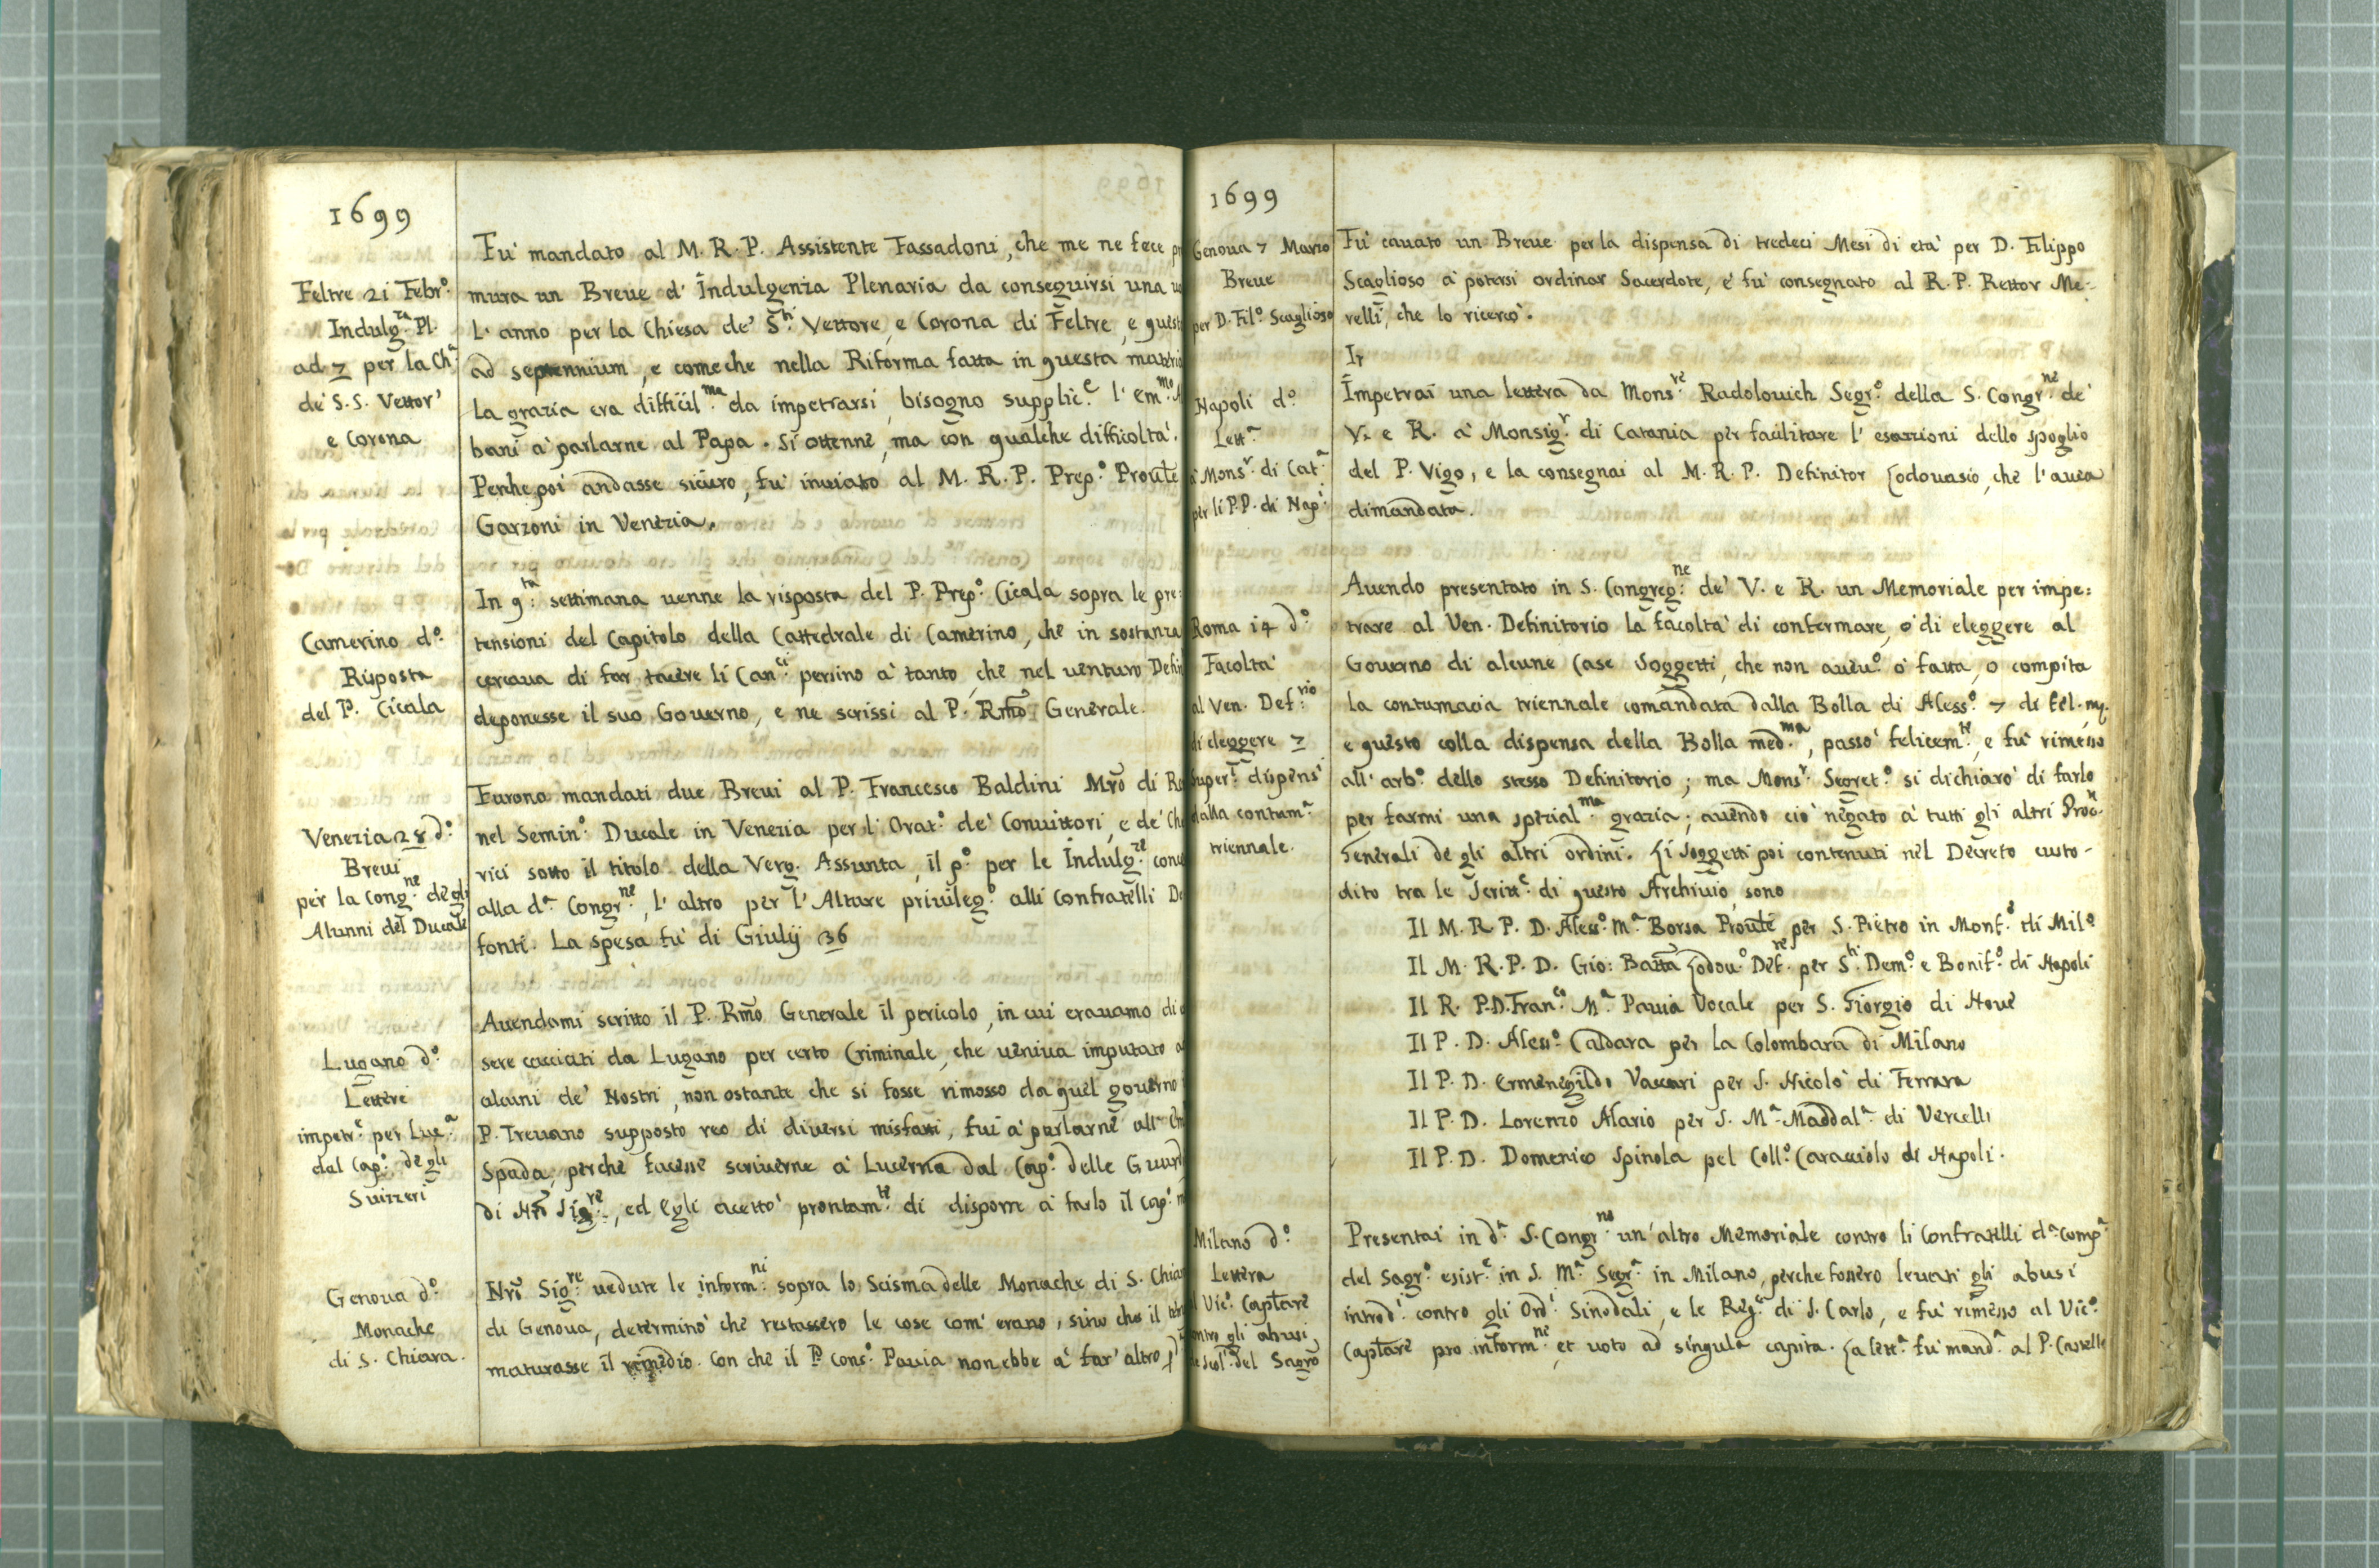 1699
Feltre 21 Febr.º
Indulg.za Pl.
ad 7 per la Ch.ª
de' S.S. Vettor'
e Corona
Fu' mandato al M. R. P. Assistente Fassadoni, che me ne fece
mura un Breue d' Indulgenza Plenaria da conseguirsi una
L' anno per la Chiesa de' S.ti Vettore, e Corona di Feltre, e quest
ad septennium, e comeche nella Riforma fatta in questa materia
la grazia era difficil.ma da impetrarsi, bisogno supplic.e l' Em.mo
bani a' parlarne al Papa. Si ottenne, ma con qualche difficolta'.
Perche poi andasse sicuro, fu' inuiato al M. R. P. Prep.º Prou̅le
Garzoni in Venezia.
Camerino d.º
Risposta
del P. Cicala
In q.ta settimana uenne la risposta del P. Prep.º Cicala sopra le pre:
tensioni del Capitolo della Cattedrale di Camerino, che in sostanza
cercaua di far tacere li Can.ci persino a' tanto, che nel uenturo Defin
deponesse il suo Gouerno, e ne scrissi al P. Rm̃o Generale.
Venezia 28 d.º
Breui
per la Cong.ne de gli
Alunni del Ducale
Furono mandati due Breui al P. Francesco Baldini Mr̃o di
nel Semin.º Ducale in Venezia per l' Orat.º de' Conuittori, e de' Che
rici sotto il titolo della Verg. Assunta, il p.º per le Indulg.ze conc
alla d.ª Congr.ne, l' altro per l' Altare priuileg.º alli Confratelli De
fonti. La spesa fu' di Giulij 36
Lugano d.º
Lettere
impetr.e per Luc.ª
dal Cap.º de gli
Suizzeri
Auendomi scritto il P. Rm̃o Generale il pericolo, in cui erauamo di
sere cacciati da Lugano per certo Criminale, che ueniua imputato a
alcuni de' Nostri, non ostante che si fosse rimosso da quel gouerno
P. Treuano supposto reo di diuersi misfatti, fui a' parlarne all' Em
Spada, perche facesse scriuerne a' Lucerna dal Cap.º delle Guard
di Nr̃o Sig.re, ed Egli acetto' prontam.te di disporre a' farlo il Cap.º
Genoua d.º
Monache
di S. Chiara.
Nr̃o Sig.re uedute le inform.ni sopra lo Scisma delle Monache di S. Chiar
di Genoua, determino' che restassero le cose com' erano, sino che il
maturasse il remedio. Con che il P. Cons.º Pauia non ebbe a' far' altro
1699
Genoua 7 Marzo
Breue
per D. Fil.º Scaglioso
Fu' cauato un Breue per la dispensa di tredeci Mesi di eta' per D. Filippo
Scaglioso a' potersi ordinar Sacerdote, e' fu' consegnato al R. P. Rettor Me-
relli, che lo ricerco'.
Napoli d.º
Lett.ª
a' Mons.r di Cat.ª
per li P.P. di Nap.i
Impetrai una lettera da Mons.re Radolouich Segr.º della S. Congr.ne de'
V. e R. a' Monsig.r di Catania per facilitare l' esazzioni dello spoglio
del P. Vigo, e la consegnai al M. R. P. Definitor Lodouasio, che l' auea
dimandata.
Roma 14 d.º
Facolta'
al Ven. Def.rio
di eleggere 7
Super.ri dispens.i
dalla contum.ª
triennale.
Auendo presentato in S. Congreg.ne de' V. e R. un Memoriale per impe:
trare al Ven. Definitorio la facolta' di confermare, o' di eleggere al
Gouerno di alcune Case Soggetti, che non aueu.º o' fatta, o compita
la contumacia triennale comandata dalla Bolla di Aless.º 7 di fel. m.
e questo colla dispensa della Bolla med.ma, passo' felicem.te, e fu' rimesso
all' arb.º dello stesso Definitorio; ma Mons.r Segret.º si dichiaro' di farlo
per farmi una spezial.ma grazia; auendo cio' negato a' tutti gli altri Proc.ri
Generali de gli altri ordini. Li Soggetti poi contenuti nel Decreto custo-
dito tra le Scritt.e di questo Archiuio, sono
Il M. R. P. D. Aless.º M.ª Borsa Prou̅le per S. Pietro in Monf.e di Mil.º
Il M. R. P. D. Gio: Batt̃a Lodou.º Def.re per S.ti Dem.º e Bonif.º di Napoli
Il R. P. D. Fran.co M.ª Pauia Vocale per S. Giorgio di Noue
Il P. D. Aless.º Caldara per la Colombara di Milano
Il P. D. Ermenegildo Vaccari per S. Nicolo' di Ferrara
Il P. D. Lorenzo Alario per S. M.ª Maddal.ª di Vercelli
Il P. D. Domenico Spinola pel Coll.º Caracciolo di Napoli.
Milano d.º
Lettera
al Vic.º Capt̃are
contro gli abusi
del Sagr̃o
Presentai in d.ª S. Congr.ne un' altro Memoriale contro li Confratelli d.ª Comp.ª
del Sagr.º esist.e in S. M.ª Segr.ª in Milano, perche fossero leuati gli abusi
introd.i contro gli Ord.i Sinodali, e le Reg.e di S. Carlo, e fu' rimesso al Vic.º
Capt̃are pro inform.ne, et uoto ad singula capita. La lett.ª fu' mand.ª al P. Castelli